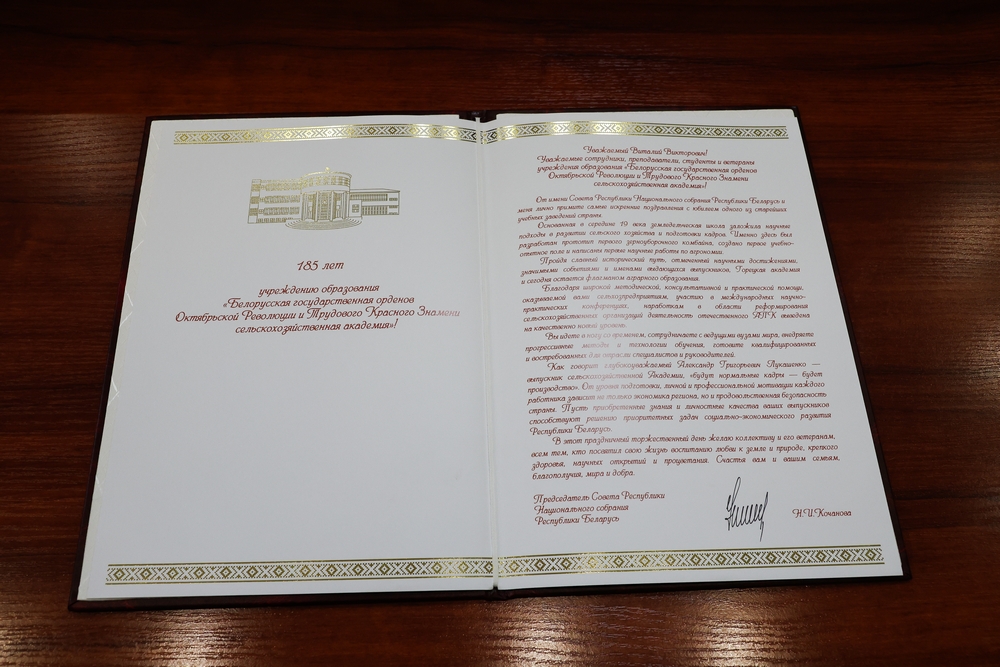 185 лет
учреждению образования
«Белорусская государственная орденов
Октябрьской Революции и Трудового Красного Знамени
сельскохозяйственная академия»!
Уважаемый Виталий Викторович!
Уважаемые сотрудники, преподаватели, студенты и ветераны
учреждения образования «Белорусская государственная орденов
Октябрьской Революции и Трудового Красного Знамени
сельскохозяйственная академия»!
От имени Совета Республики Национального собрания Республики Беларусь и
меня лично примите самые искренние поздравления с юбилеем одного из старейших
учебных заведений страны.
Основанная в середине 19 века земледельческая школа заложила научные
подходы в развитии сельского хозяйства и подготовки кадров. Именно здесь был
разработан прототип первого зерноуборочного комбайна, создано первое учебно-
опытное поле и написаны первые научные работы по агрономии.
Пройдя славный исторический путь, отмеченный научными достижениями,
значимыми событиями и именами выдающихся выпускников, Горецкая академия
и сегодня остается флагманом аграрного образования.
Благодаря широкой методической, консультативной и практической помощи,
оказываемой вами сельхозпредприятиям, участию в международных научно-
практических конференциях, наработкам в области реформирования
сельскохозяйственных организаций деятельность отечественного АПК выведена
на качественно новый уровень.
Вы идете в ногу со временем, сотрудничаете с ведущими вузами мира, внедряете
прогрессивные методы и технологии обучения, готовите квалифицированных
и востребованных для отрасли специалистов и руководителей.
Как говорит глубокоуважаемый Александр Григорьевич Лукашенко —
выпускник сельскохозяйственной Академии, «будут нормальные кадры — будет
производство». От уровня подготовки, личной и профессиональной мотивации каждого
работника зависит не только экономика региона, но и продовольственная безопасность
страны. Пусть приобретенные знания и личностные качества ваших выпускников
способствуют решению приоритетных задач социально-экономического развития
Республики Беларусь.
В этот праздничный торжественный день желаю коллективу и его ветеранам,
всем тем, кто посвятил свою жизнь воспитанию любви к земле и природе, крепкого
здоровья, научных открытий и процветания. Счастья вам и вашим семьям,
благополучия, мира и добра.
Председатель Совета Республики
Национального собрания
Республики Беларусь
Н.И.Кочанова